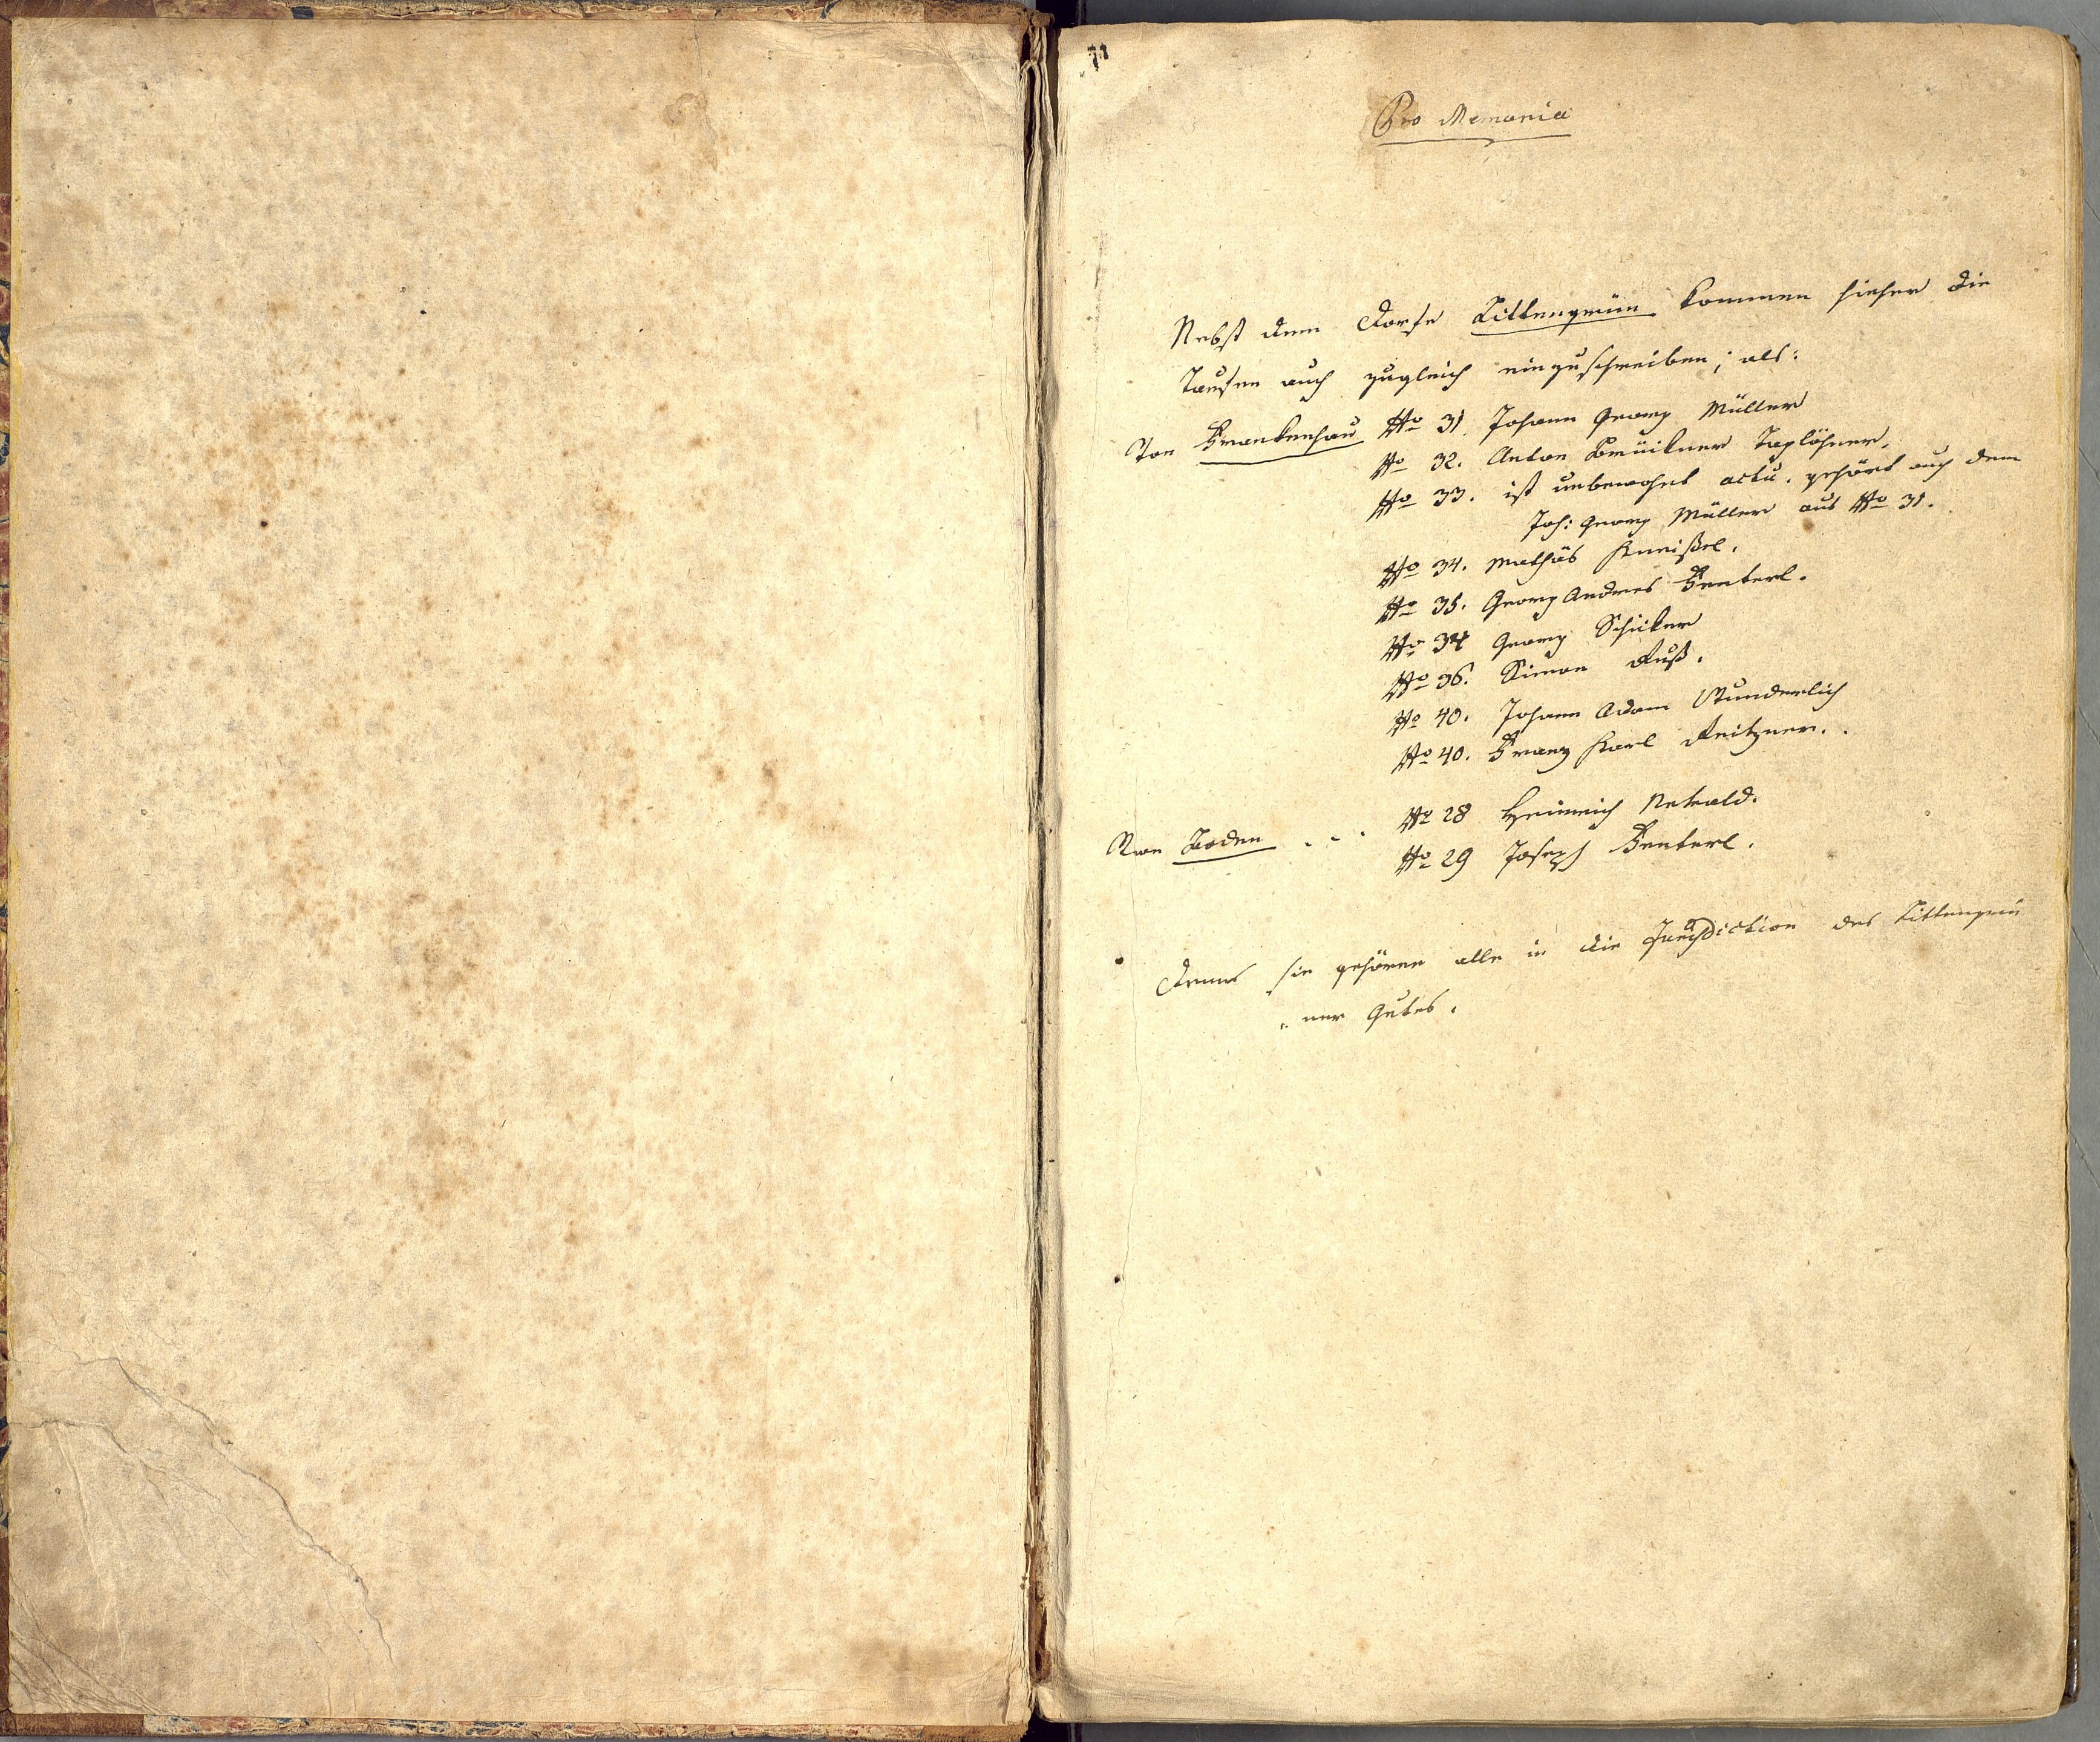 Pro Memoria
Nebst dem Dorfe Littengrün kommen hieher die
Taufen auch zugleich einzuschreiben; als:
Von Frankenhau No 31. Johann Georg Müller
No 32. Anton Brückner Taglöhner.
No 33. ist unbewohnt actu. gehört auch dem
Joh: Georg Müller aus No 31.
No 34. Mathäs Kneißel.
No 35. Georg Andres Fenterl.
No 34 Georg Schicker
No 36. Simon Ruß.
No 40. Johann Adam Wunderlich
No 40. Franz Karl Reitzner.
Von Boden - - - No 28 Heinrich Netwald.
No 29 Joseph Fenterl.
Denn sie gehören alle in die Jurisdiction des Littengrün
" ner Gutes.